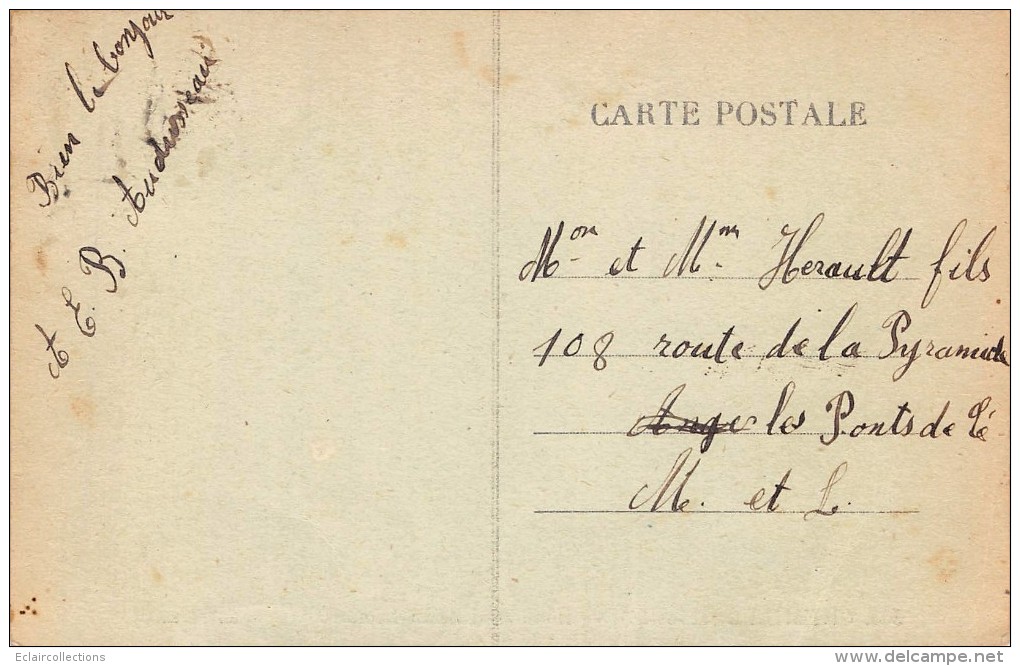 Bien le bonjour
A E. B. Audusseau
CARTE POSTALE
Mon et Mm Herault fils
108 route de la Pyramide
Angers les Ponts de Cé
M. et L.
Eclaircollections
delcampe.net